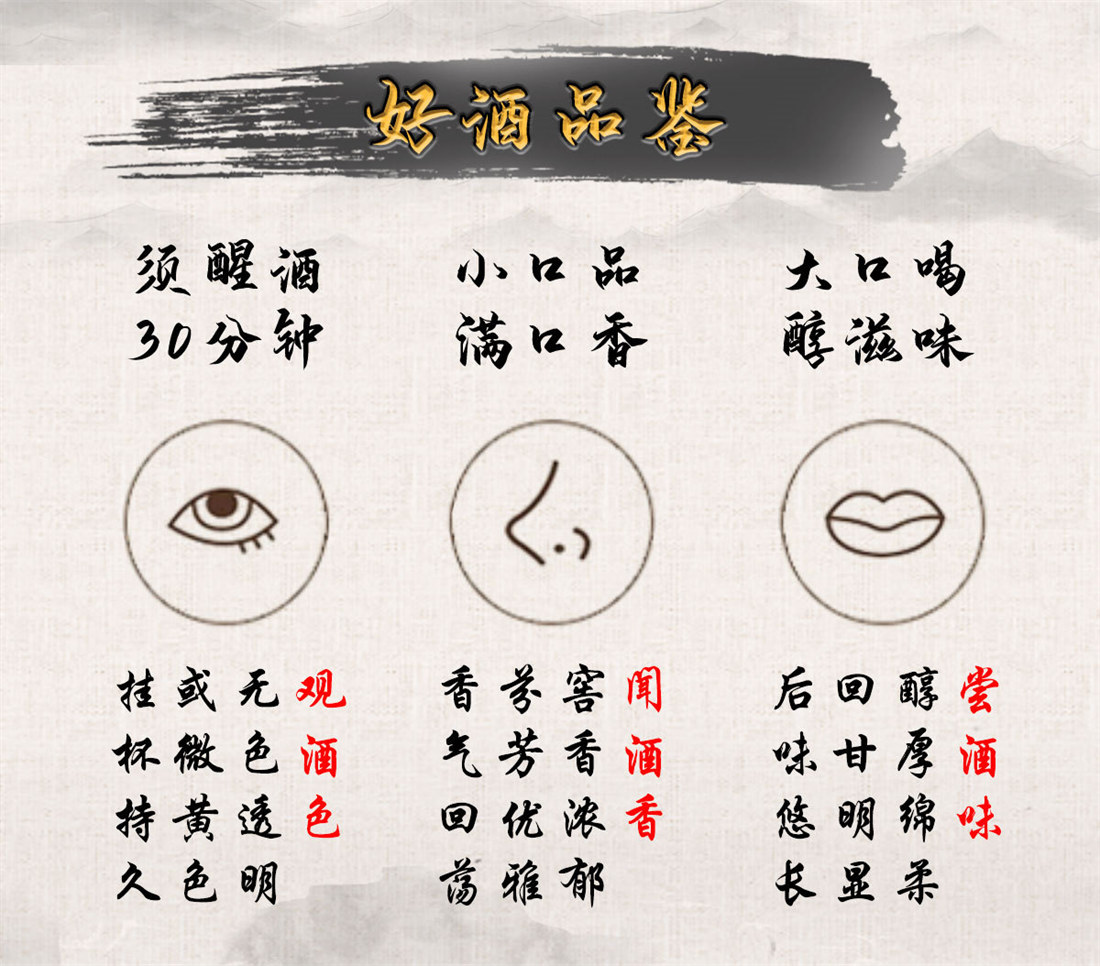 好酒品鉴
须醒酒
30分钟
小口品
满口香
大口喝
醇滋味
观酒色
无色透明
或微黄色
挂杯持久
闻酒香
窖香浓郁
芬芳优雅
香气回荡
尝酒味
醇厚绵柔
回甘明显
后味悠长